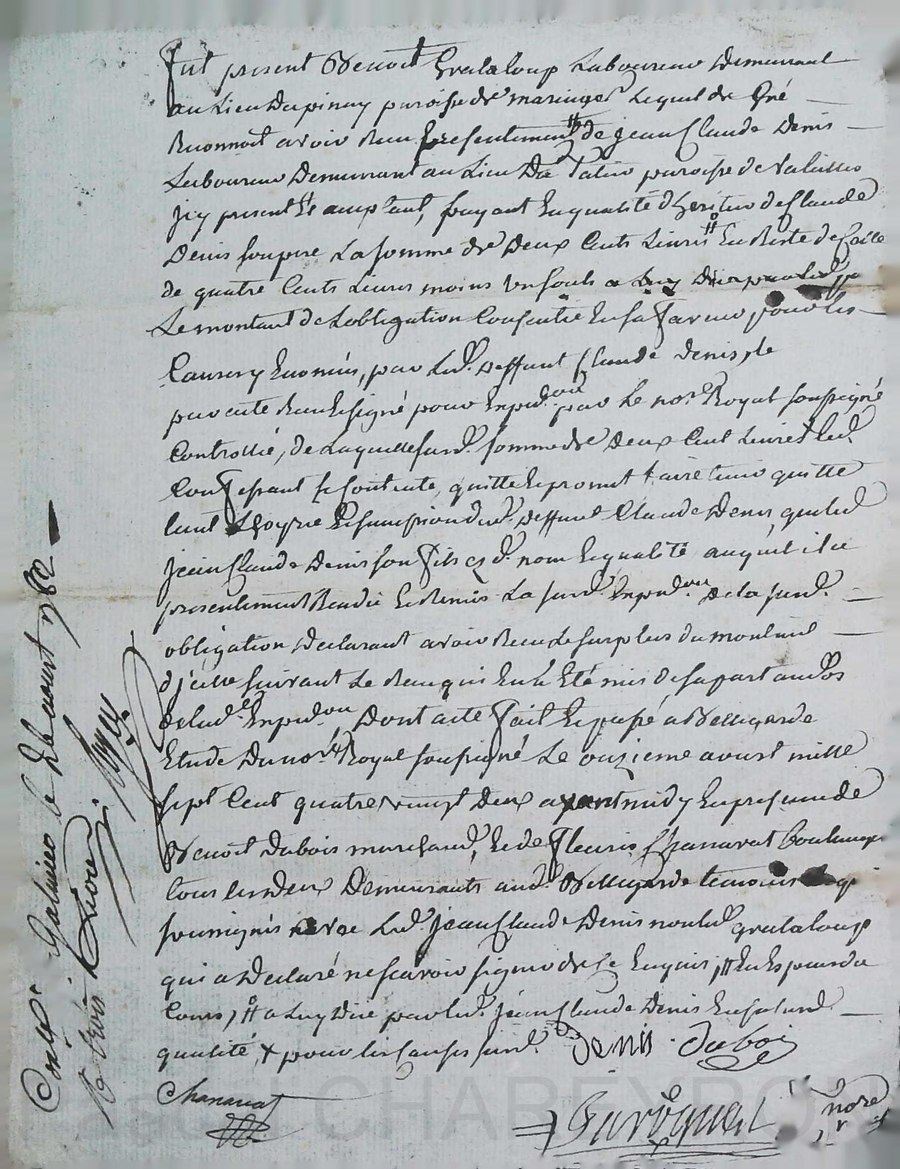 fut present Benoit Grataloup Laboureur Demeurant
au Lieu Dupinay paroisse de maringes Lequel de Gré
Reconnoit avoir Reçu presentement # de jean Claude Denis
Laboureur Demeurant au Lieu Du paroisse de
jcy present Et acceptant, payant En qualité d'heritier de Claude
Denis son pere La somme de Deux Cents Livres # En Reste de Celle
de quatre Cents Livres moins un sols a Luy
Le montant de Lobligation Consentie En sa faveur pour les
Causes y Enoncées, par Led. deffunt Claude denis,
par acte Reçu Et signé pour Expedon par Le nore Royal soussigné
Controllé, de Laquelle susd. somme de Deux Cent Livres Led.
Confessant se Contente, quitte Et promet faire tenir quitte
tant L'hoyrie Et succession dud. deffunt Claude Denis que led.
jean Claude Denis son fils esd. nom Et qualité auquel il a
presentement Rendu Et Remis La susd. Expedon De la susd.
obligation Declarant avoir Reçu Le surplus du montant
d'jcelle suivant Le Reçu qui En a Eté mis de sa part au Dos
de lad. Expedon Dont acte fait Et passé a Bellegarde
Etude Du nore Royal soussigné Le onzieme aoust mille
sept Cent quatre vingt Deux avant midy En presence de
Benoit Dubois marchand, Et de fleuris Chanavat Boulanger
tous les deux Demeurants aud. Bellegarde temoins
soussignés avec Led. jean Claude Denis non led. grataloup
qui a Declaré ne scavoir signer de ce Enquis, # En Especes du
Cours, # a Luy Düe par led. jean Claude Denis En sa susd.
qualité, + pour les Causes susd.
Denis Dubois
Chanavat
nore
Contlé. Galmier le aoust 1782